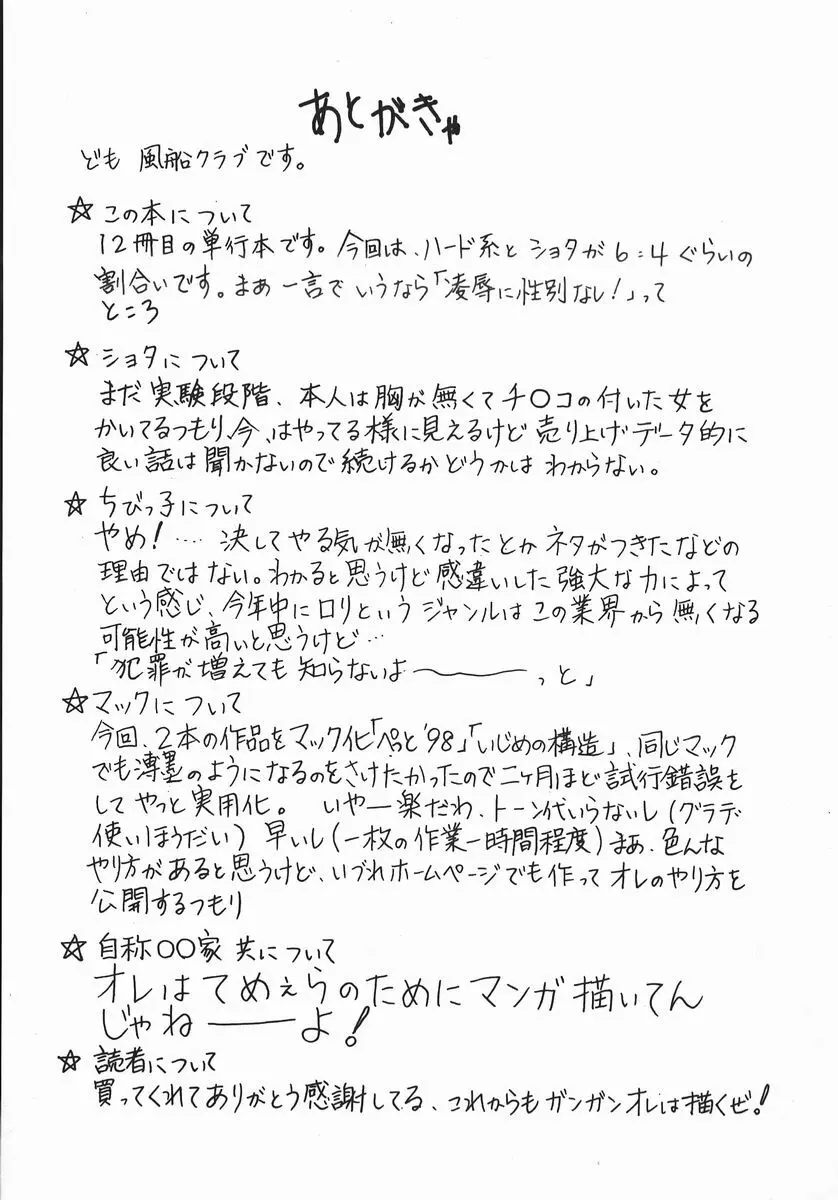 あとがきゃ
ども 風船クラブです。
☆ この本について
12冊目の単行本です。今回は、ハード系と ショタが6:4ぐらいの
割合いです。まあ一言で いうなら「凌辱に性別なし!」って
ところ
☆ ショタについて
まだ実験段階、本人は胸が無くてチ○コの付いた女を
かいてるつもり、今、はやってる様に見えるけど 売り上げデータ的に
良い話は聞かないので続けるかどうかは わからない。
☆ ちびっ子について
やめ!‥‥ 決してやる気が無くなったとか ネタがつきたなどの
理由では ない。わかると思うけど 感違いした強大な力によって
という感じ、今年中にロリという ジャンルは この業界から 無くなる
可能性が高いと思うけど…
「犯罪が増えても 知らないよ〜〜っと」
☆ マックについて
今回、2本の作品をマック化「ぺっと'98」「いじめの構造」、同じマック
でも薄墨のようになるのをさけたかったので二ヶ月ほど試行錯誤を
して やっと実用化。 いやー楽だわ、トーン代いらないし(グラデ
使いほうだい) 早いし(一枚の作業一時間程度)まぁ、色んな
やり方があると思うけど、いづれホームページでも作って オレのやり方を
公開するつもり
☆ 自称○○家 共について
オレはてめぇらのためにマンガ描いてん
じゃねーーよ!
☆ 読者について
買ってくれてありがとう感謝してる、これからもガンガンオレは描くぜ!